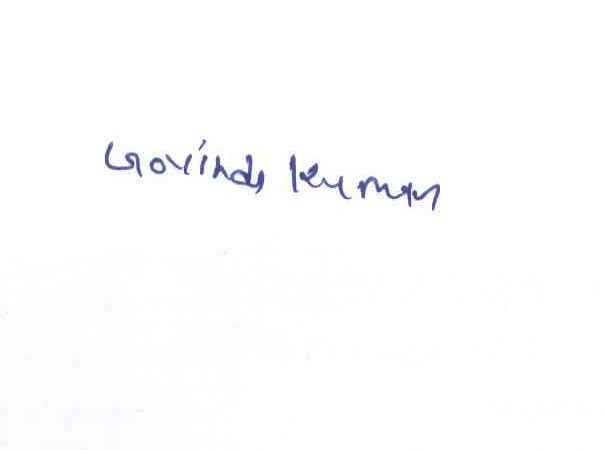 Govinda Kumar